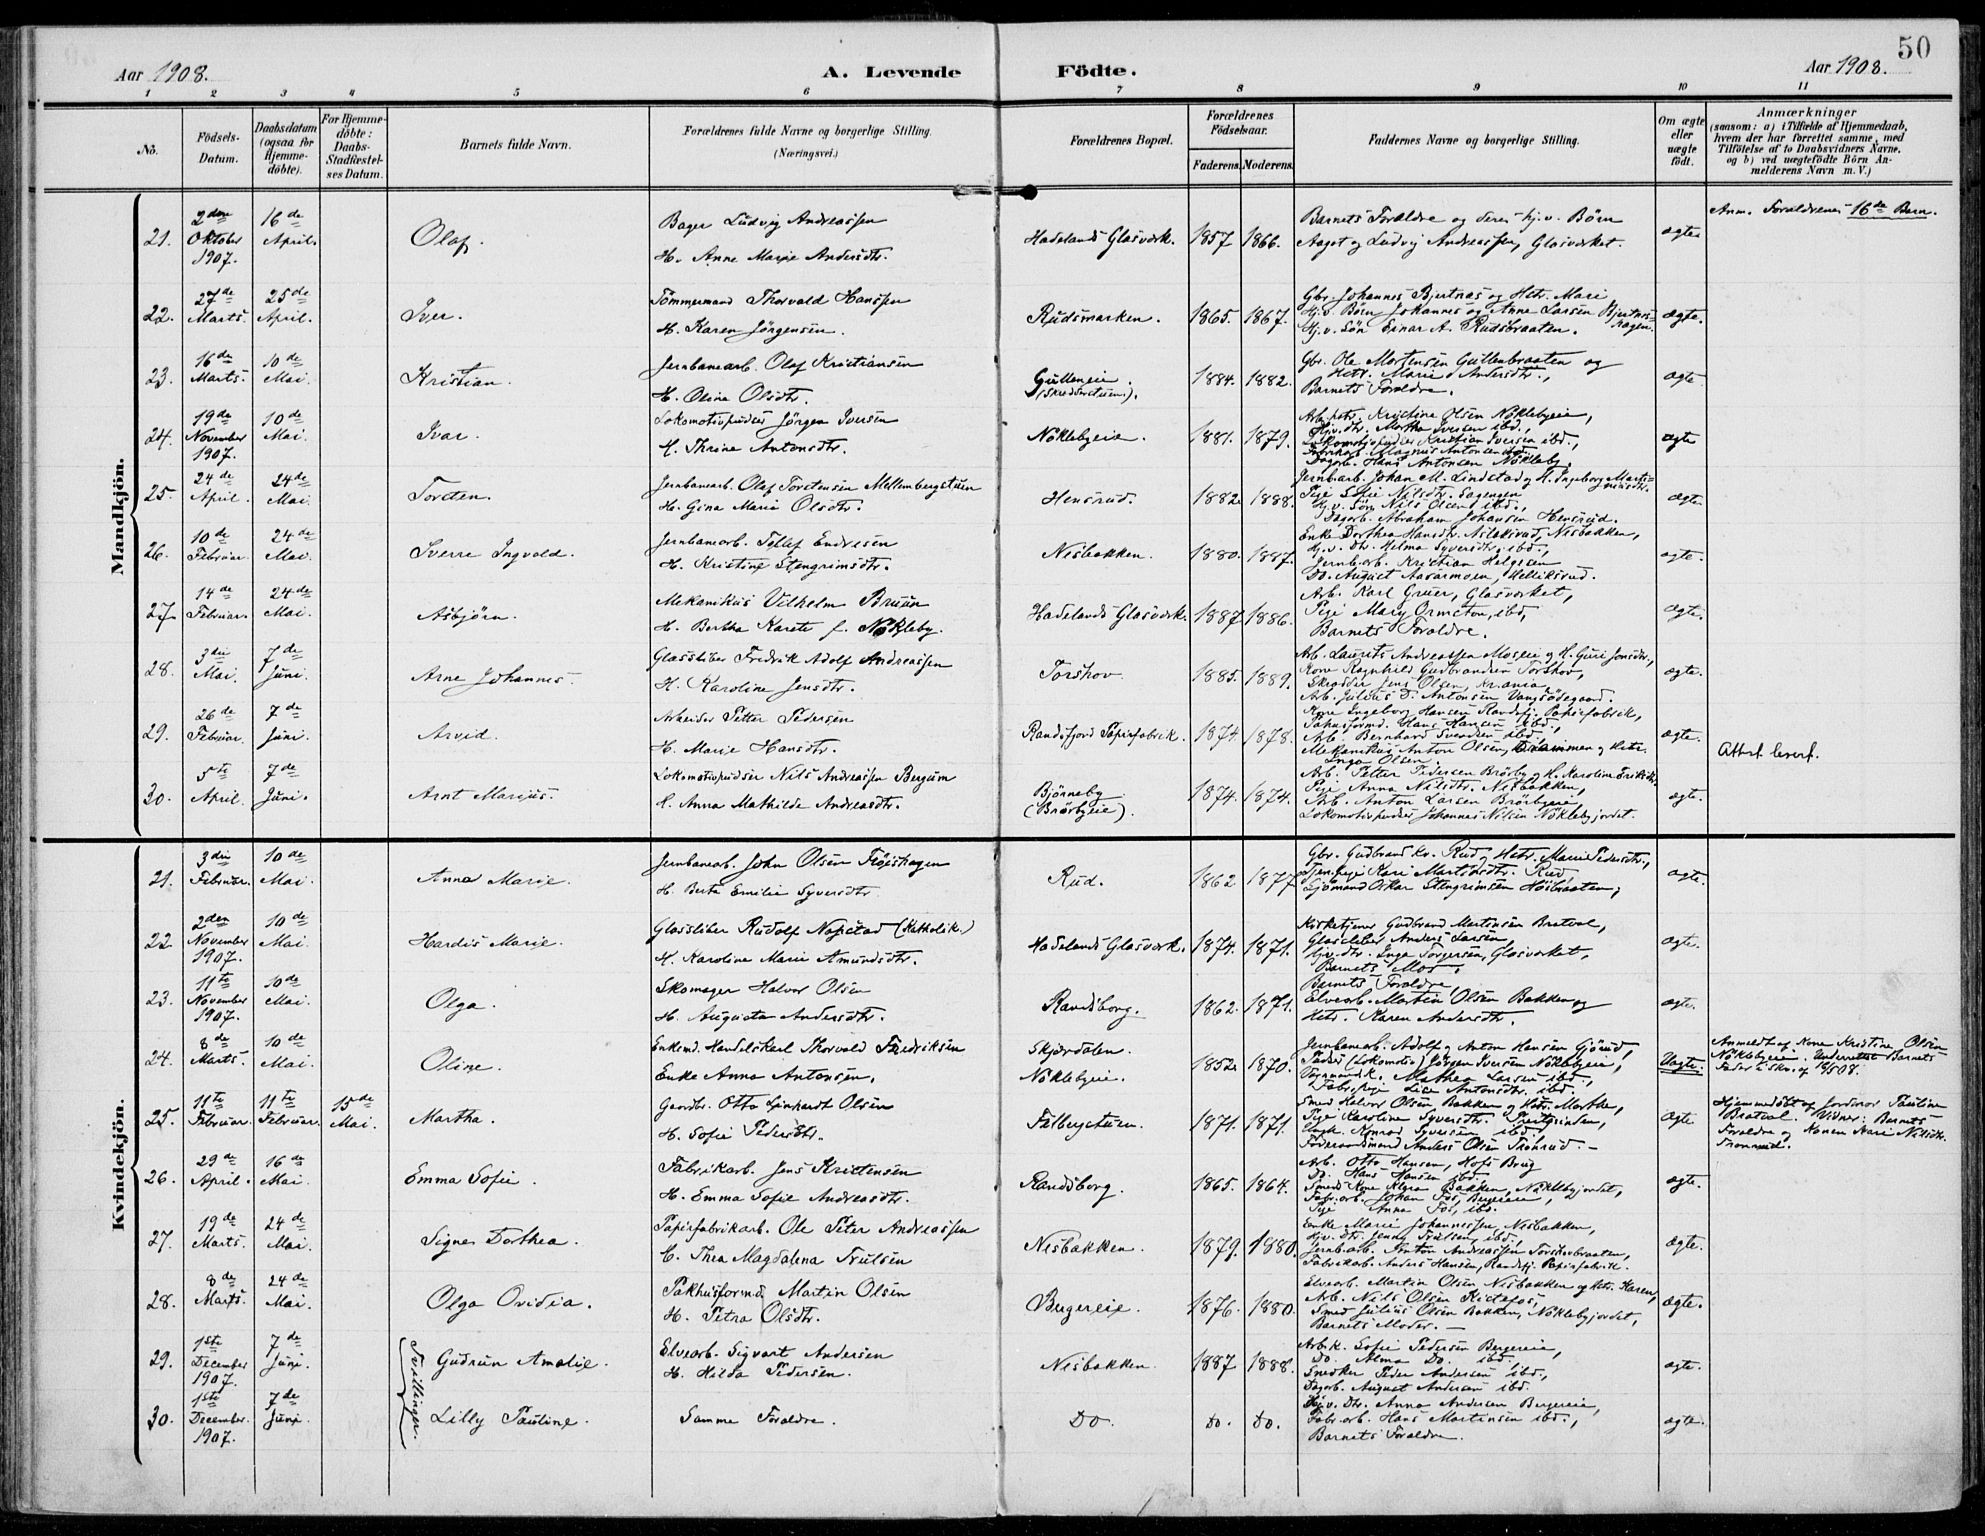 50
Aar 1908.
A. Levende Födte.
Aar 1908.
1 2 3 4 5 6 7 8 9 10 11
No.
Födsels-Datum.
Daabsdatum (ogsaa for Hjemme-döbte).
For Hjemme-döbte: Daabs-Stadfæstel-ses Datum.
Barnets fulde Navn.
Forældrenes fulde Navne og borgerlige Stilling.
(Næringsvei.)
Forældrenes Bopæl.
Forældrenes Födselsaar.
Faderens. Moderens.
Faddernes Navne og borgerlige Stilling.
Om ægte eller uægte födt.
Anmærkninger
(saasom: a) i Tilfælde af Hjemmedaab, hvem der har forrettet samme, med Tilföielse af to Daabsvidners Navne, og b) ved uægtefödte Börn An-melderens Navn m. V.)
Mandkjön.
21. 2den Oktober 1907. 16de April. Olaf.
Bager Ludvig Andreassen
H. Anne Marie Andersdtr.
Hadelands Glasværk. 1857 1866.
Barnets Forældre og deres hj.v. Börn
Aagot og Ludvig Andreassen, Glasværket.
ægte
Anm. Forældrenes 16de Barn.
22. 27de Marts. 25de April. Iver.
Tömmermand Thorvald Hanssen
H. Karen Jörgensen.
Rudsmarken. 1865. 1867.
Gbr. Johannes Bjertnæs og Hstr. Mari
Hj.v. Börn Johannes og Anna Larsen Bjertnæs-hagen.
Hj.v. Sön Einar A. Rudsbraaten.
ægte.
23. 16de Marts. 10de Mai. Kristian.
Jernbanearb. Olaf Kristiansen
H. Olina Olsdtr.
Gulleneie. 1884. 1882.
Gbr. Ole Martensen Gullenbraaten og
Hstr. Marie Andersdtr.,
Barnets Forældre.
ægte
24. 19de November 1907. 10de Mai. Ivar.
Lokomotivpudser Jörgen Iversen
H. Thrine Antonsdtr.
Nöklebyeie. 1881. 1879.
Arb.kstr. Kristine Olsen Nöklebyeie,
Hj.v.dtr. Martha Iversen ibd.,
Lokomotivpudser Kristian Iversen ibd.,
Fabrikarb. Magnus Antonsen ibd.
Dagarb. Hans Antonsen Nökleby.
ægte
25. 24de April. 24de Mai. Torsten.
Jernbanearb. Olaf Torstensen Mellembergstuen
H. Gina Marie Olsdtr.
Hensrud. 1882. 1888.
Jernb.arb. Johan M. Lindstad og H. Ingeborg Marti-
Pige Sofie Nilsdtr. Sagengen
Hj.v. Sön Nils Olsen ibd.,
Dagarb. Abraham Johansen Hensrud.
ægte.
26. 10de Februar. 24de Mai. Sverre Ingvald.
Jernbanearb. Tellef Endresen
H. Kristine Stengrimsdtr.
Nesbakken. 1880. 1887.
Enke Dorthea Hansdtr. Aslaksrud, Nesbakken,
Hj.v. Dtr. Helma Syversdtr. ibd.,
Jernb.arb. Kristian Helgesen
Do. August Aasarmoen, Melliksrud.
ægte.
27. 14de Februar. 24de Mai. Asbjörn.
Mekanikus Vilhelm Bruun
H. Bertha Karete f. Nökleby.
Hadelands Glasværk. 1887. 1886.
Arb. Karl Gruer, Glasværket,
Pige Mary Ormeton, ibd,
Barnets Forældre.
ægte.
28. 3die Mai. 7de Juni. Arne Johannes.
Glassliber Fredrik Adolf Andreassen
H. Karoline Jensdtr.
Torshov. 1885. 1889.
Arb. Laurits Andreassen Moseie og H. Guri Jonsdtr.,
Kone Ragnhild Gudbrandsen Torshov,
Skrædder Jens Olsen, Kr.ania,
Arb. Julius D. Antonsen Vangsödegaard.
ægte.
29. 26de Februar. 7de Juni. Arvid.
Arbeider Petter Pedersen
H. Marie Hansdtr.
Randsfjord Papirfabrik. 1874. 1878.
Kone Ingeborg Hansen Randsfj. Papirfabrik,
Pakhusformd. Hans Hansen ibd.,
Arb. Bernhard Svendsen ibd.,
Mekanikus Anton Olsen, Drammen og Hstr.
Inga Olsen.
ægte.
Attest levert.
30. 5te April. 7de Juni. Arnt Marius.
Lokomotivpudser Nils Andreassen Bergum
H. Anna Mathilde Andreasdtr.
Bjørneby (Brörbyeie). 1874. 1874.
Arb. Petter Pedersen Brörby og H. Karoline Eriksdtr.
Pige Anna Nilsdtr. Nesbakken,
Arb. Anton Larsen Brörbyeie,
Lokomotivpudser Johannes Nilsen Nöklebyjordet.
ægte.
Kvindekjön.
21. 3die Februar. 10de Mai. Anna Marie.
Jernbanearb. John Olsen Flöishagen
H. Berte Emilie Syversdtr.
Rud. 1862 1877.
Gbr. Gudbrand Kr. Rud og Hstr. Marie Pedersdtr.,
Tjen.pige Kari Martinsdtr. Rud,
Sjömand Oskar Stengrimsen Höibraaten,
ægte.
22. 2den November 1907. 10de Mai. Hardis Marie.
Glassliber Rudolf Napstad (Katholik.)
H. Karoline Marie Amundsdtr.
Hadelands Glasværk. 1874. 1871.
Kirketjener Gudbrand Martinsen Bratval,
Glassliber Anders Larsen,
Hj.v.dtr. Inga Torgersen, Glasværket,
Barnets Mor.
ægte.
23. 11te November 1907. 10de Mai. Olga.
Skomager Halvor Olsen
H. Augusta Andersdtr.
Randsborg. 1862. 1871.
Barnets Forældre,
Elvearb. Martin Olsen Bakken og
Hstr. Karen Andersdtr.
ægte.
24. 8de Marts. 10de Mai. Oline.
Enkemd. Handelskarl Thorvald Fredriksen
Enke Anna Antonsen.
Skjærdalen.
Nöklebyeie. 1852. 1870.
Jernbanearb. Adolf og Anton Hansen Gjörud,
Pudser (Lokomotiv) Jörgen Iversen Nöklebyeie,
Mathea Larsen ibd.,
Fabr.pige Lise Antonsdtr. ibd.
Uægte.
Anmeldt af Kone Kristine Olsen
Nöklebyeie. Underrettet Barnets
Fader i Skr. af 19/5 08.
25. 11te Februar. 11te Februar. 15de Mai. Martha.
Gaardbr. Otto Linhardt Olsen
H. Sofie Pedersdtr.
Falbergstuen. 1871. 1871.
Smed Halvor Olsen Bakken og Hstr. Marthe,
Pige Karoline Syversdtr. Trestginden,
Ungk. Konrad Syversen ibd.
Föderaadsmand Anders Olsen Trohrud.
ægte
Hjemmedöbt af Jordmor Pauline
Bratval. Vidner: Barnets
Forældre og Konen Kari Nilsdtr.
26. 29de April. 16de Mai. Emma Sofie.
Fabrikarb. Jens Kristensen
H. Emma Sofie Andreasdtr.
Randsborg. 1865. 1864.
Arb. Otto Hansen, Hofs Brug
Do. Hans Hansen ibd.
Smeds Kone Klara Bakken, Nöklebyjordet,
Fabr.arb. Johan Fos, Bergereie,
Pige Anna Fos, ibd.
ægte.
27. 19de Marts. 24de Mai. Signe Dorthea.
Papirfabrikarb. Ole Peter Andreassen
H. Thea Magdalena Trulsen
Nesbakken. 1879. 1880.
Enke Marie Johannessen, Nesbakken,
Hj.v. Dtr. Jenny Trulsen, ibd.,
Jernb.arb. Anton Andreassen Torshovbraaten,
Fabrikarb. Anders Hansen, Randsfj. Papirfabrik.
ægte.
28. 8de Marts. 24de Mai. Olga Ovidia.
Pakhusformd. Martin Olsen
H. Petra Olsdtr.
Bergereie. 1876. 1880.
Elvearb. Martin Olsen Nesbakken og Hstr. Karen,
Arb. Nils Olsen Kistefos,
Smed Julius Olsen Bakken, Nöklebyjordet,
Barnets Moder.
ægte.
29. 1ste December 1907. 7de Juni. Tvillinger. Gudrun Amalie.
Elvearb. Sigvart Andersen
H. Hilda Pedersen.
Nesbakken. 1887 1888.
Arb.k. Sofie Pedersen Bergereie,
Do. Alma Do. ibd.
Snedker Peder Andersen ibd.,
Dagarb. August Andersen ibd.
ægte.
30. 1ste December 1907. 7de Juni. Lilly Pauline.
Samme Forældre.
Do. Do. Do.
Hj.v. Dtr. Anna Andersen Bergereie,
Fabr.arb. Hans Martinsen ibd.,
Barnets Forældre.
ægte.